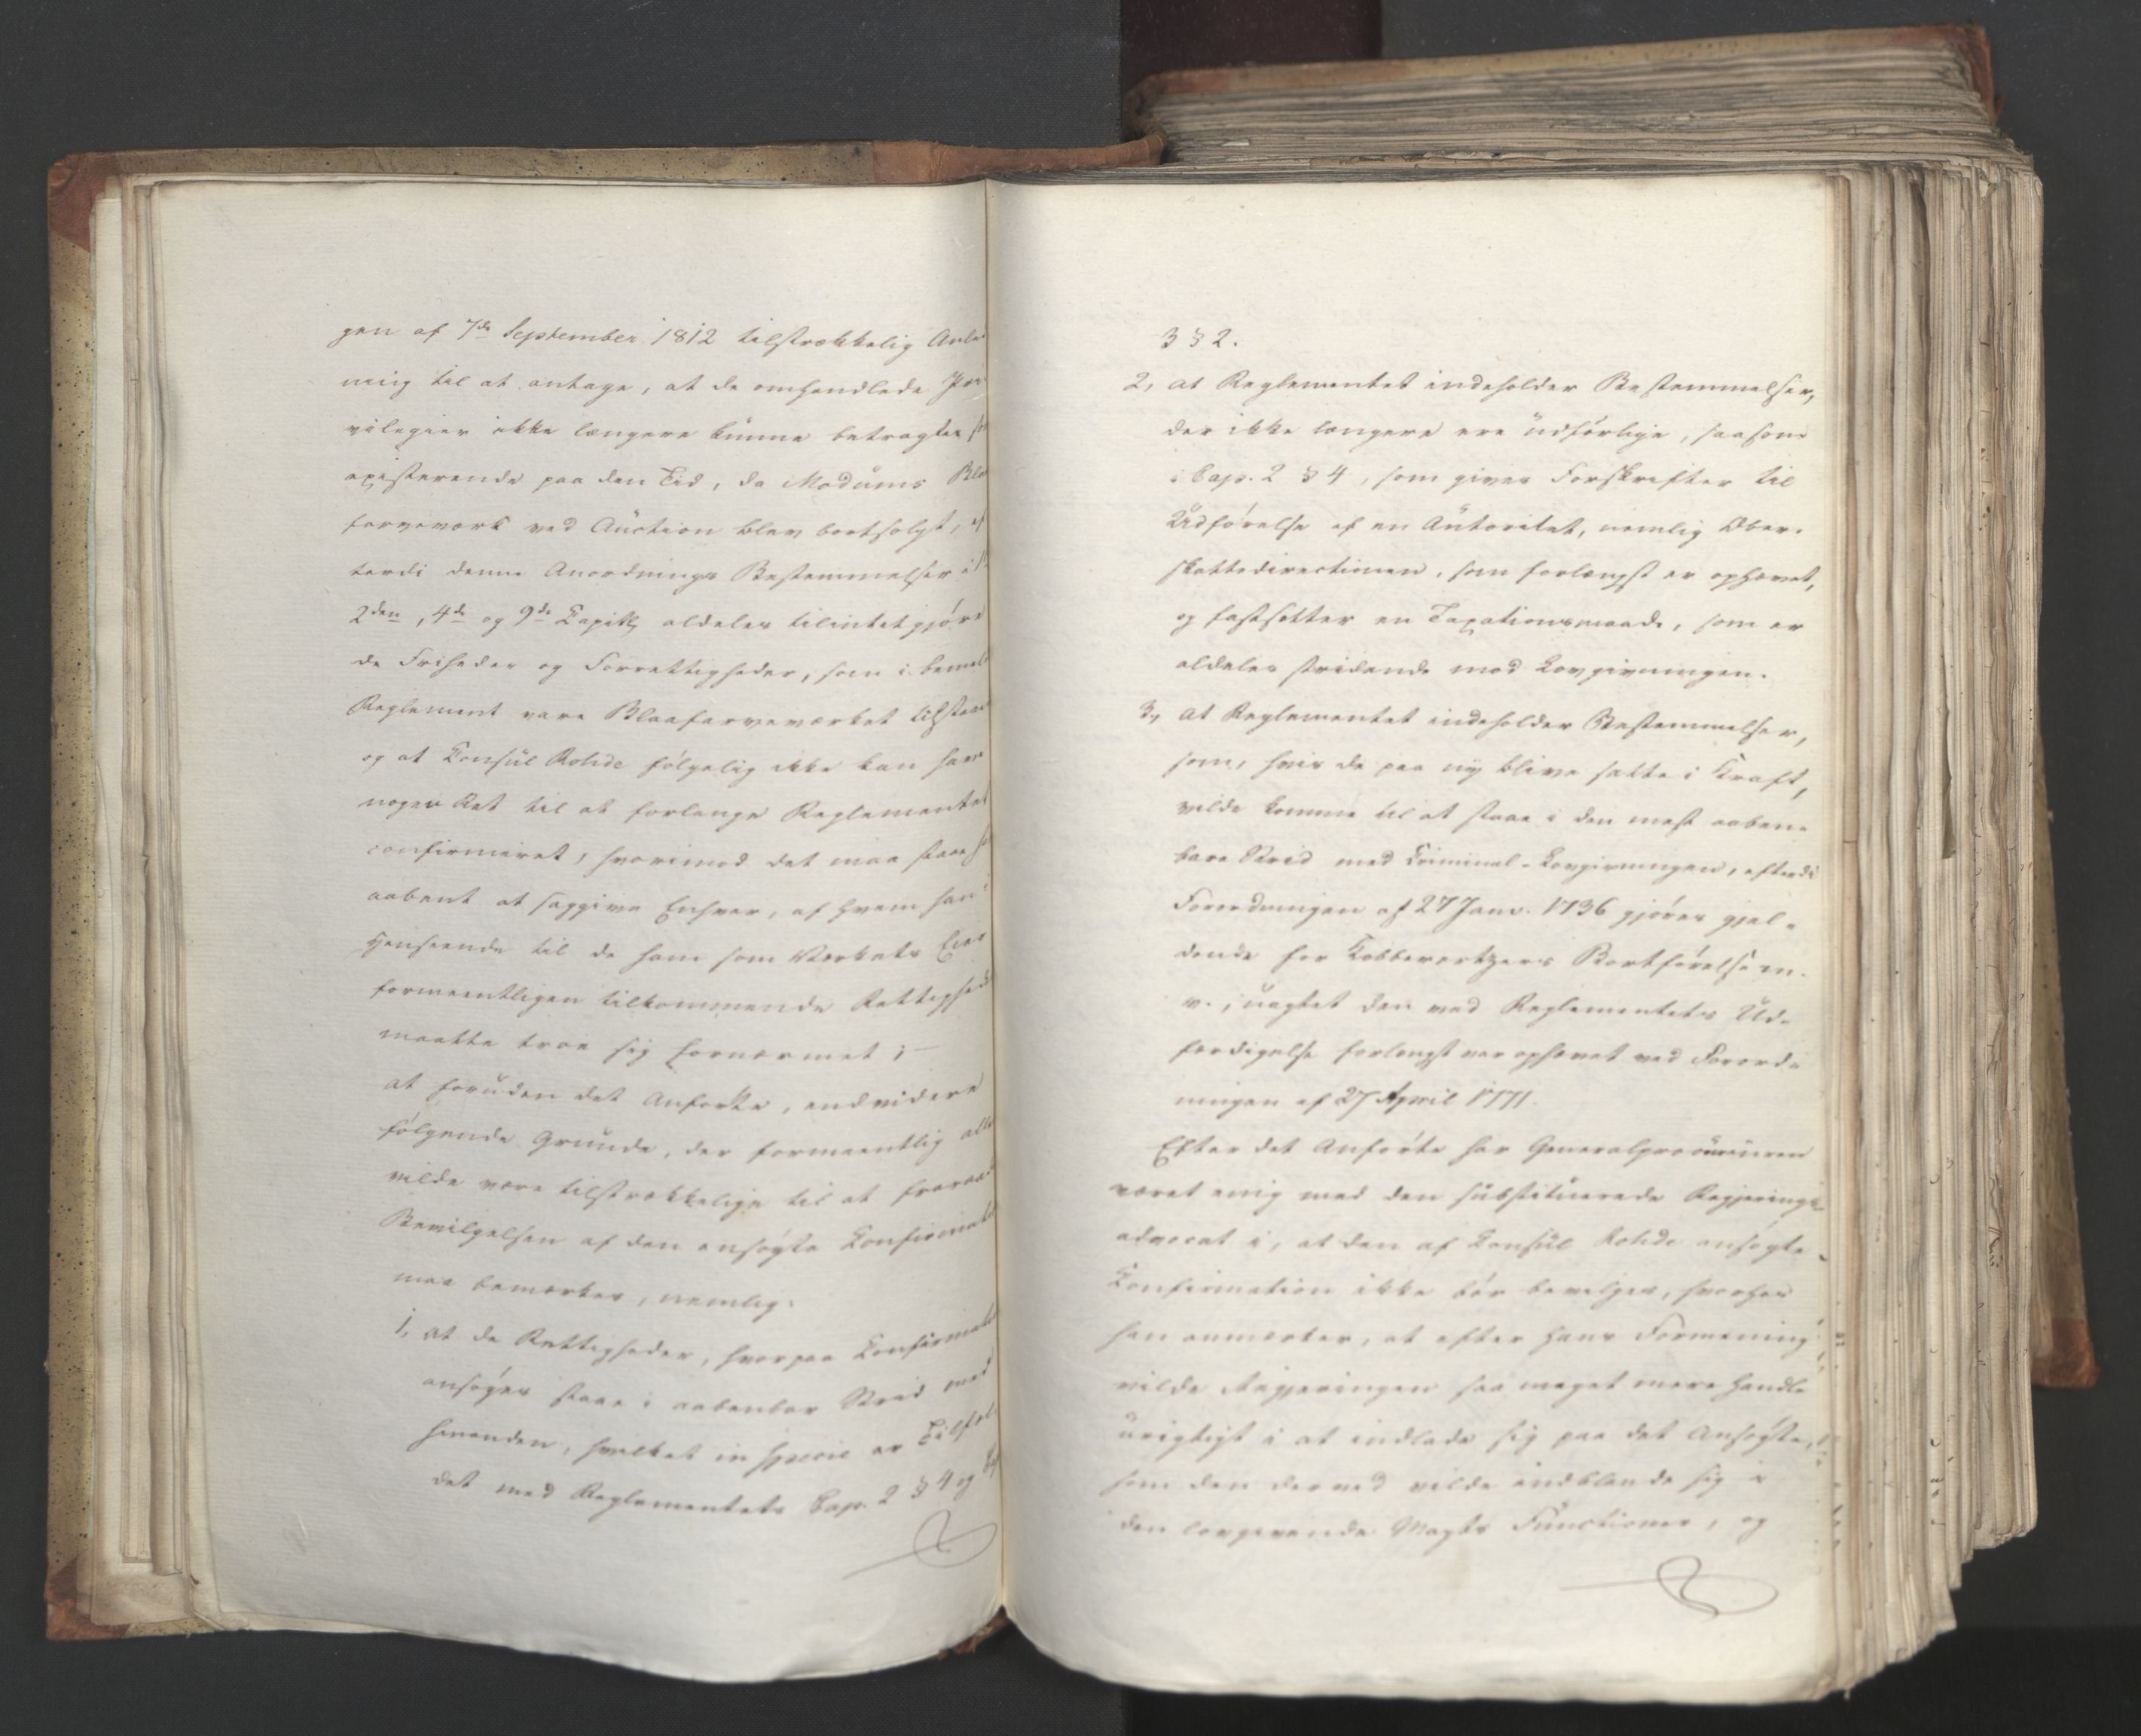 gen af 7de September 1812 tilstrækkelig Anled
ning til at antage, at de omhandlede Pri
vilegier ikke længere kunne betragtes
existerende paa den Tid, da Modums Bla
farveværk ved Auction blev bortsolgt, ef
terdi denne Anordnings Bestemmelser i
2den, 4de og 9de Capitl aldeles tilintetgjøre
de Friheder og Forrettigheder, som i bemel
Reglement vare Blaafarveværket tilstaa
og at Consul Rohde følgelig ikke kan have
nogen Ret til at forlange Reglementet
confirmeret, hvorimod det maa staae
aabent at sagsgive Enhver, af hvem han i
Henseende til de ham som Værkets Eier
formeentligen tilkommende Rettighed
maatte troe sig fornærmet; —
at foruden det Anførte, endvidere
følgende Grunde, der formeentlig alle
vilde være tilstrækkelige til at fraraa
Bevilgelsen af den ansøgte Confirmat
maa bemærkes, nemlig:
1, at de Rettigheder, hvorpaa Confirmat
ansøges staae i aabenbar Strid med
hinanden, hvilket in specie er Tilfæl
det med Reglementets Cap. 2 § 4 og
3 § 2.
2, at Reglementet indeholder Bestemmelser,
der ikke længere ere udførlige, saasom
i Cap. 2 § 4, som giver Forskrifter til
Udførelse af en Autoritet, nemlig Over-
skattedirectionen, som forlængst er ophævet,
og fastsetter en Taxationsmaade, som er
aldeles stridende mod Lovgivningen.
3, at Reglementet indeholder Bestemmelser,
som, hvis de paa ny blive satte i Kraft,
vilde komme til at staae i den mest aaben-
bare Strid med Criminal-Lovgivningen, efterdi
Forordningen af 27 Janv. 1736 gjøres gjæl-
dende for Kobberertzers Bortførelse m.
v., uagtet den ved Reglementets Ud-
færdigelse forlængst var ophævet ved Forord-
ningen af 27 April 1771.
Efter det Anførte har Generalprocureuren
været enig med den substituerede Regjerings-
advocat i, at den af Consul Rohde ansøgte
Confirmation ikke bør bevilges, hvorhos
han anmærker, at efter hans Formening
vilde Regjeringen saa meget mere handle
urigtigt i at indlade sig paa det Ansøgte,
som den derved vilde indblande sig i
den lovgivende Magts Functioner, og